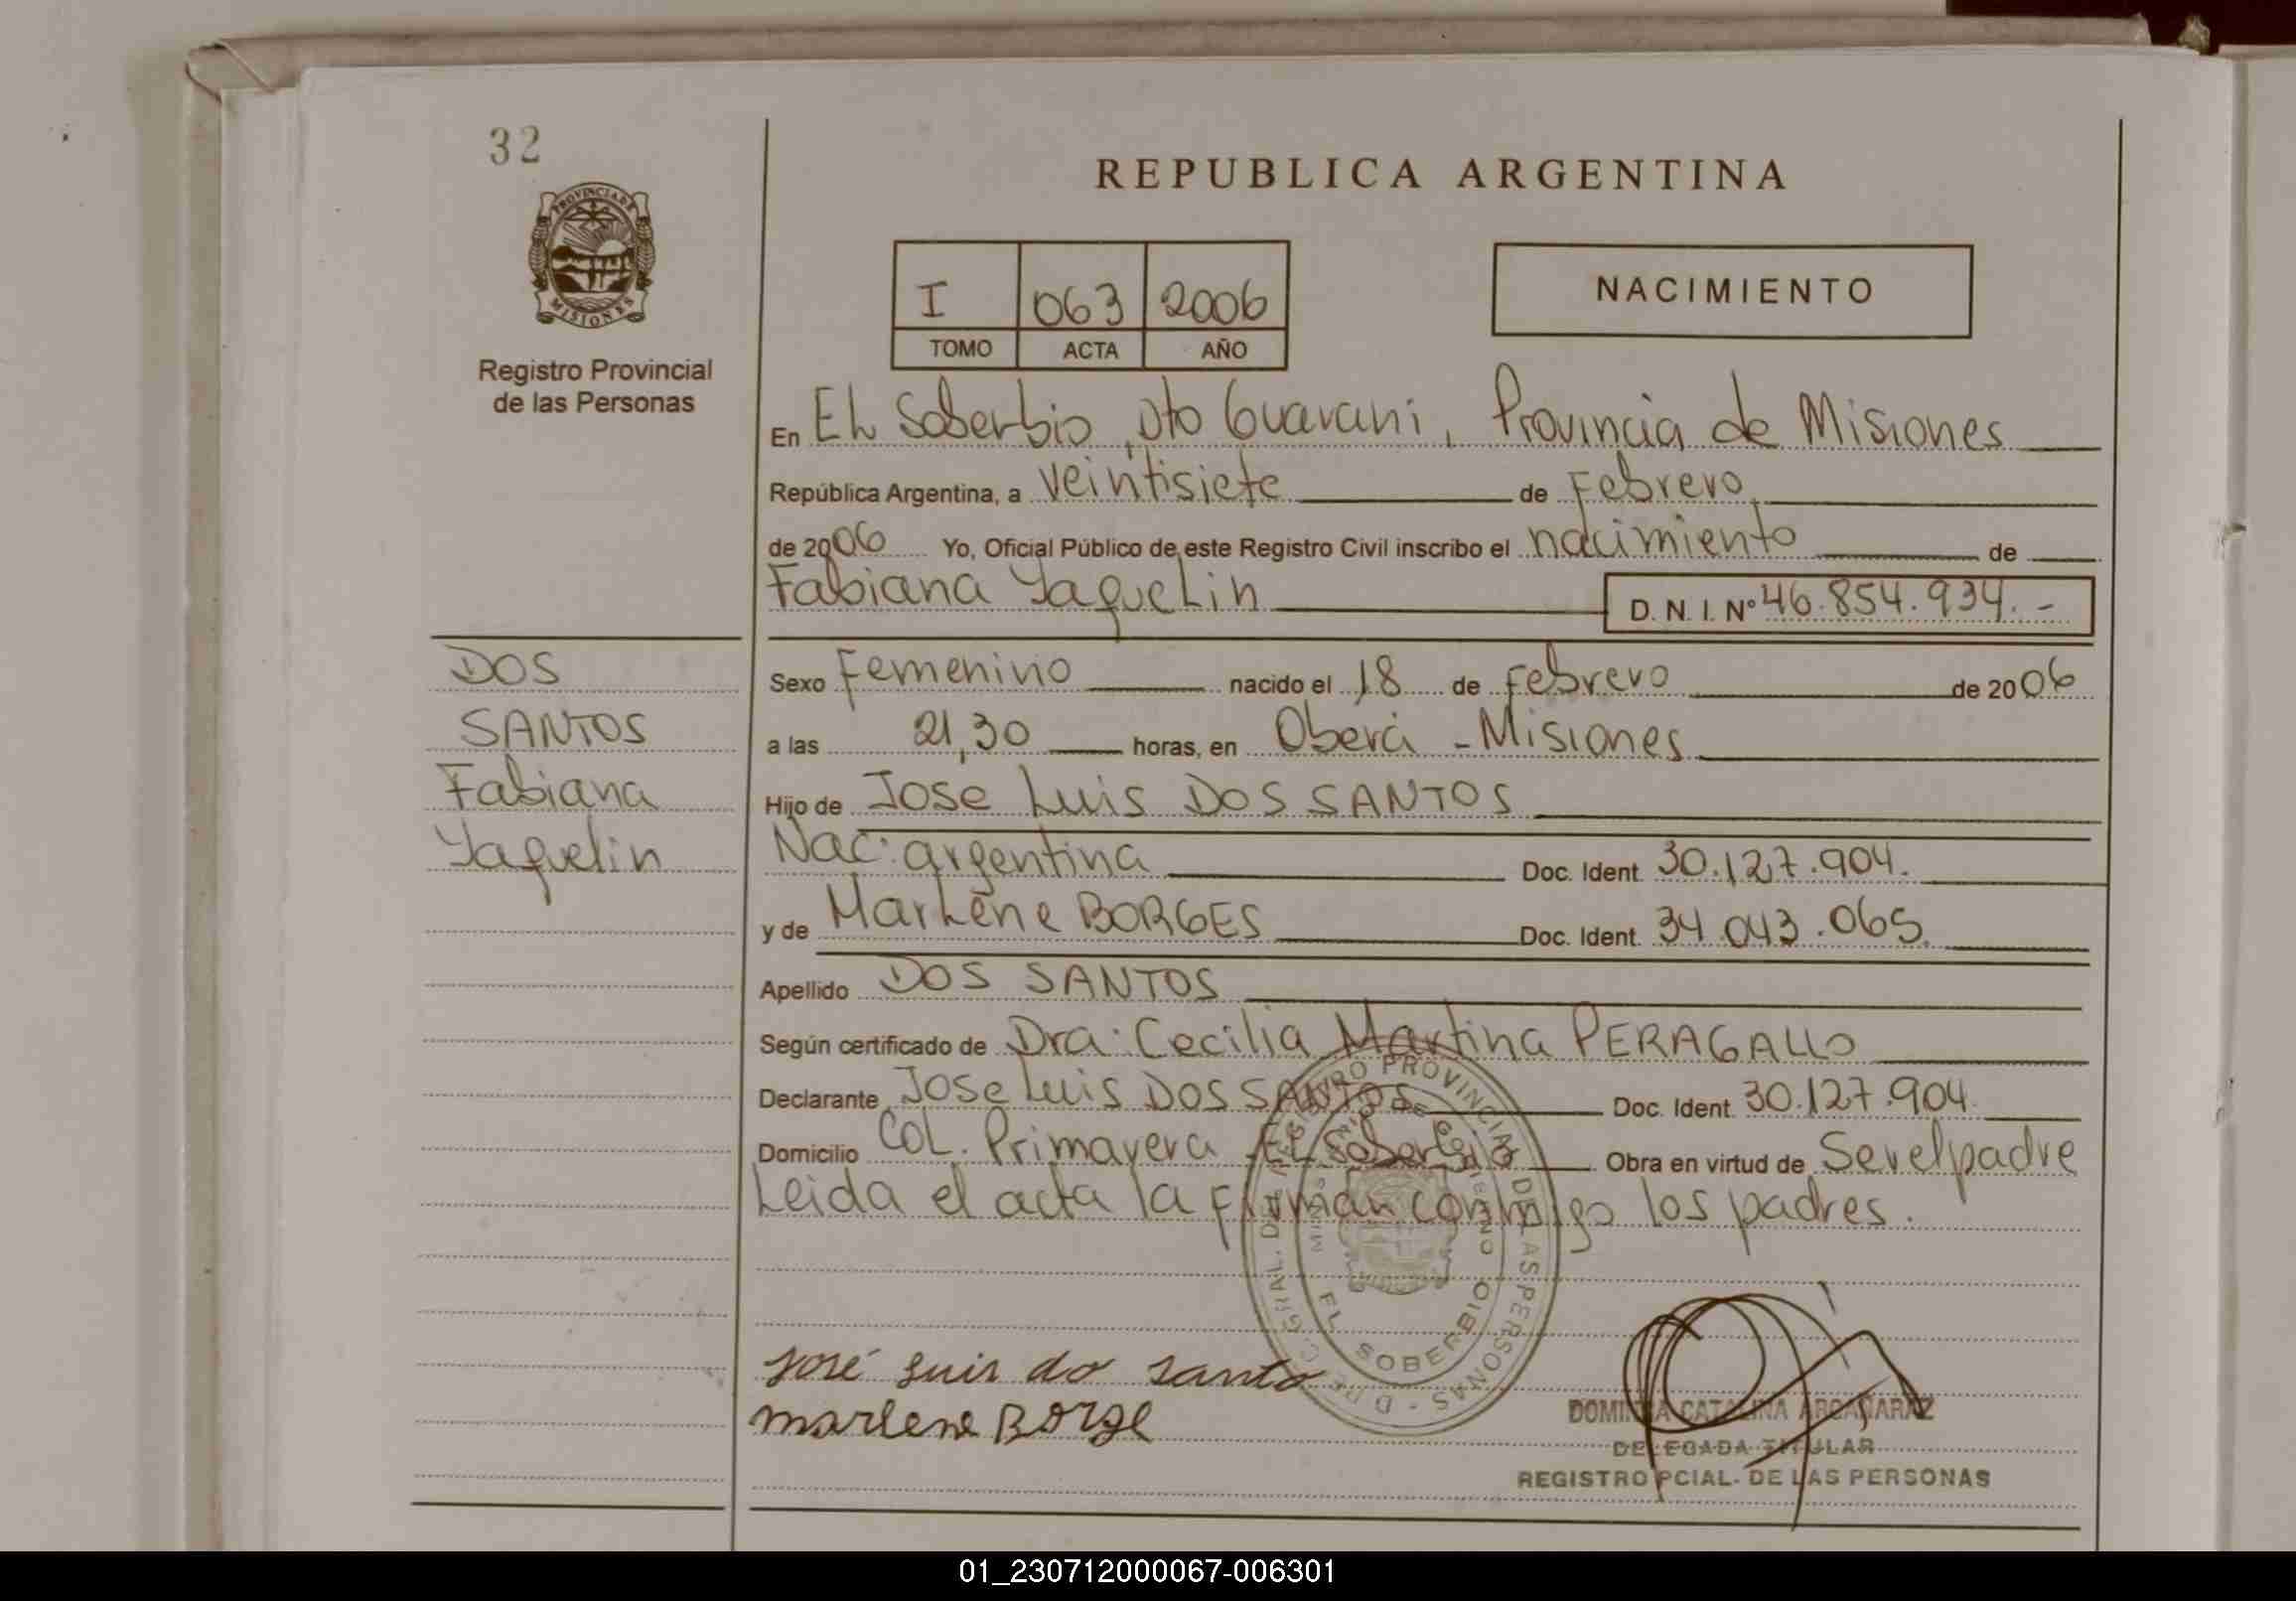 32
PROVINCIA DE
MISIONES
Registro Provincial
de las Personas
REPUBLICA ARGENTINA
I 063 2006
TOMO ACTA AÑO
NACIMIENTO
En EL Soberbio, Dto Guarani, Provincia de Misiones
República Argentina, a veintisiete de Febrero
de 2006 Yo, Oficial Público de este Registro Civil inscribo el nacimiento de
Fabiana Yaquelin D. N. I. Nº 46.854.934.-
DOS
SANTOS
Fabiana
Yaquelin
Sexo Femenino nacido el 18 de Febrero de 2006
a las 21,30 horas, en Oberá - Misiones
Hijo de Jose Luis DOS SANTOS
Nac: argentina Doc. Ident. 30.127.904.
y de Marlene BORGES Doc. Ident. 34.043.065.
Apellido DOS SANTOS
Según certificado de Dra: Cecilia Martina PERAGALLO
Declarante Jose Luis DOS SANTOS Doc. Ident. 30.127.904.
Domicilio Col. Primavera EL Soberbio Obra en virtud de Ser el padre
Leida el acta la firman conmigo los padres.
DIRE. C. GRAL. DEL REGISTRO PROVINCIAL DE LAS PERSONAS
GOBIERNO
EL SOBERBIO
José Luis do santo
marlene Borge
CATALINA ARGAÑARAZ
DELEGADA TITULAR
REGISTRO PCIAL- DE LAS PERSONAS
01_230712000067-006301